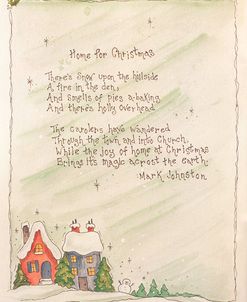 Home for Christmas
There's Snow upon the hillside
A fire in the den,
And smells of pies a-baking
And there's holly overhead
The Carolers have wandered
Through the town and into Church,
While the joy of home at Christmas
Brings it's magic acrost the earth.
-Mark Johnston